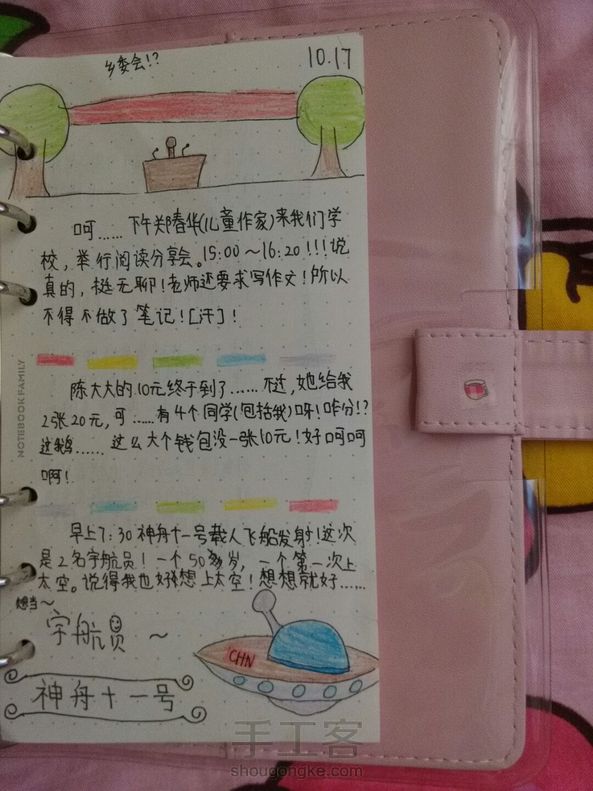 乡委会!?
10.17
呵……下午郑春华(儿童作家)来我们学
校，举行阅读分享会。15:00～16:20!!!说
真的，挺无聊!老师还要求写作文!所以
不得不做了笔记![汗]!
NOTEBOOK FAMILY
陈大大的10元终于到了……不过，她给我
2张20元，可……有4个同学(包括我)呀!咋分!?
这……这么大个钱包没一张10元!好呵呵
啊!
早上7:30神舟十一号载人飞船发射!这次
是2名宇航员!一个50多岁，一个第一次上
太空。说得我也好想上太空!想想就好……
想当～
宇航员～
CHN
神舟十一号
手工客
shougongke.com